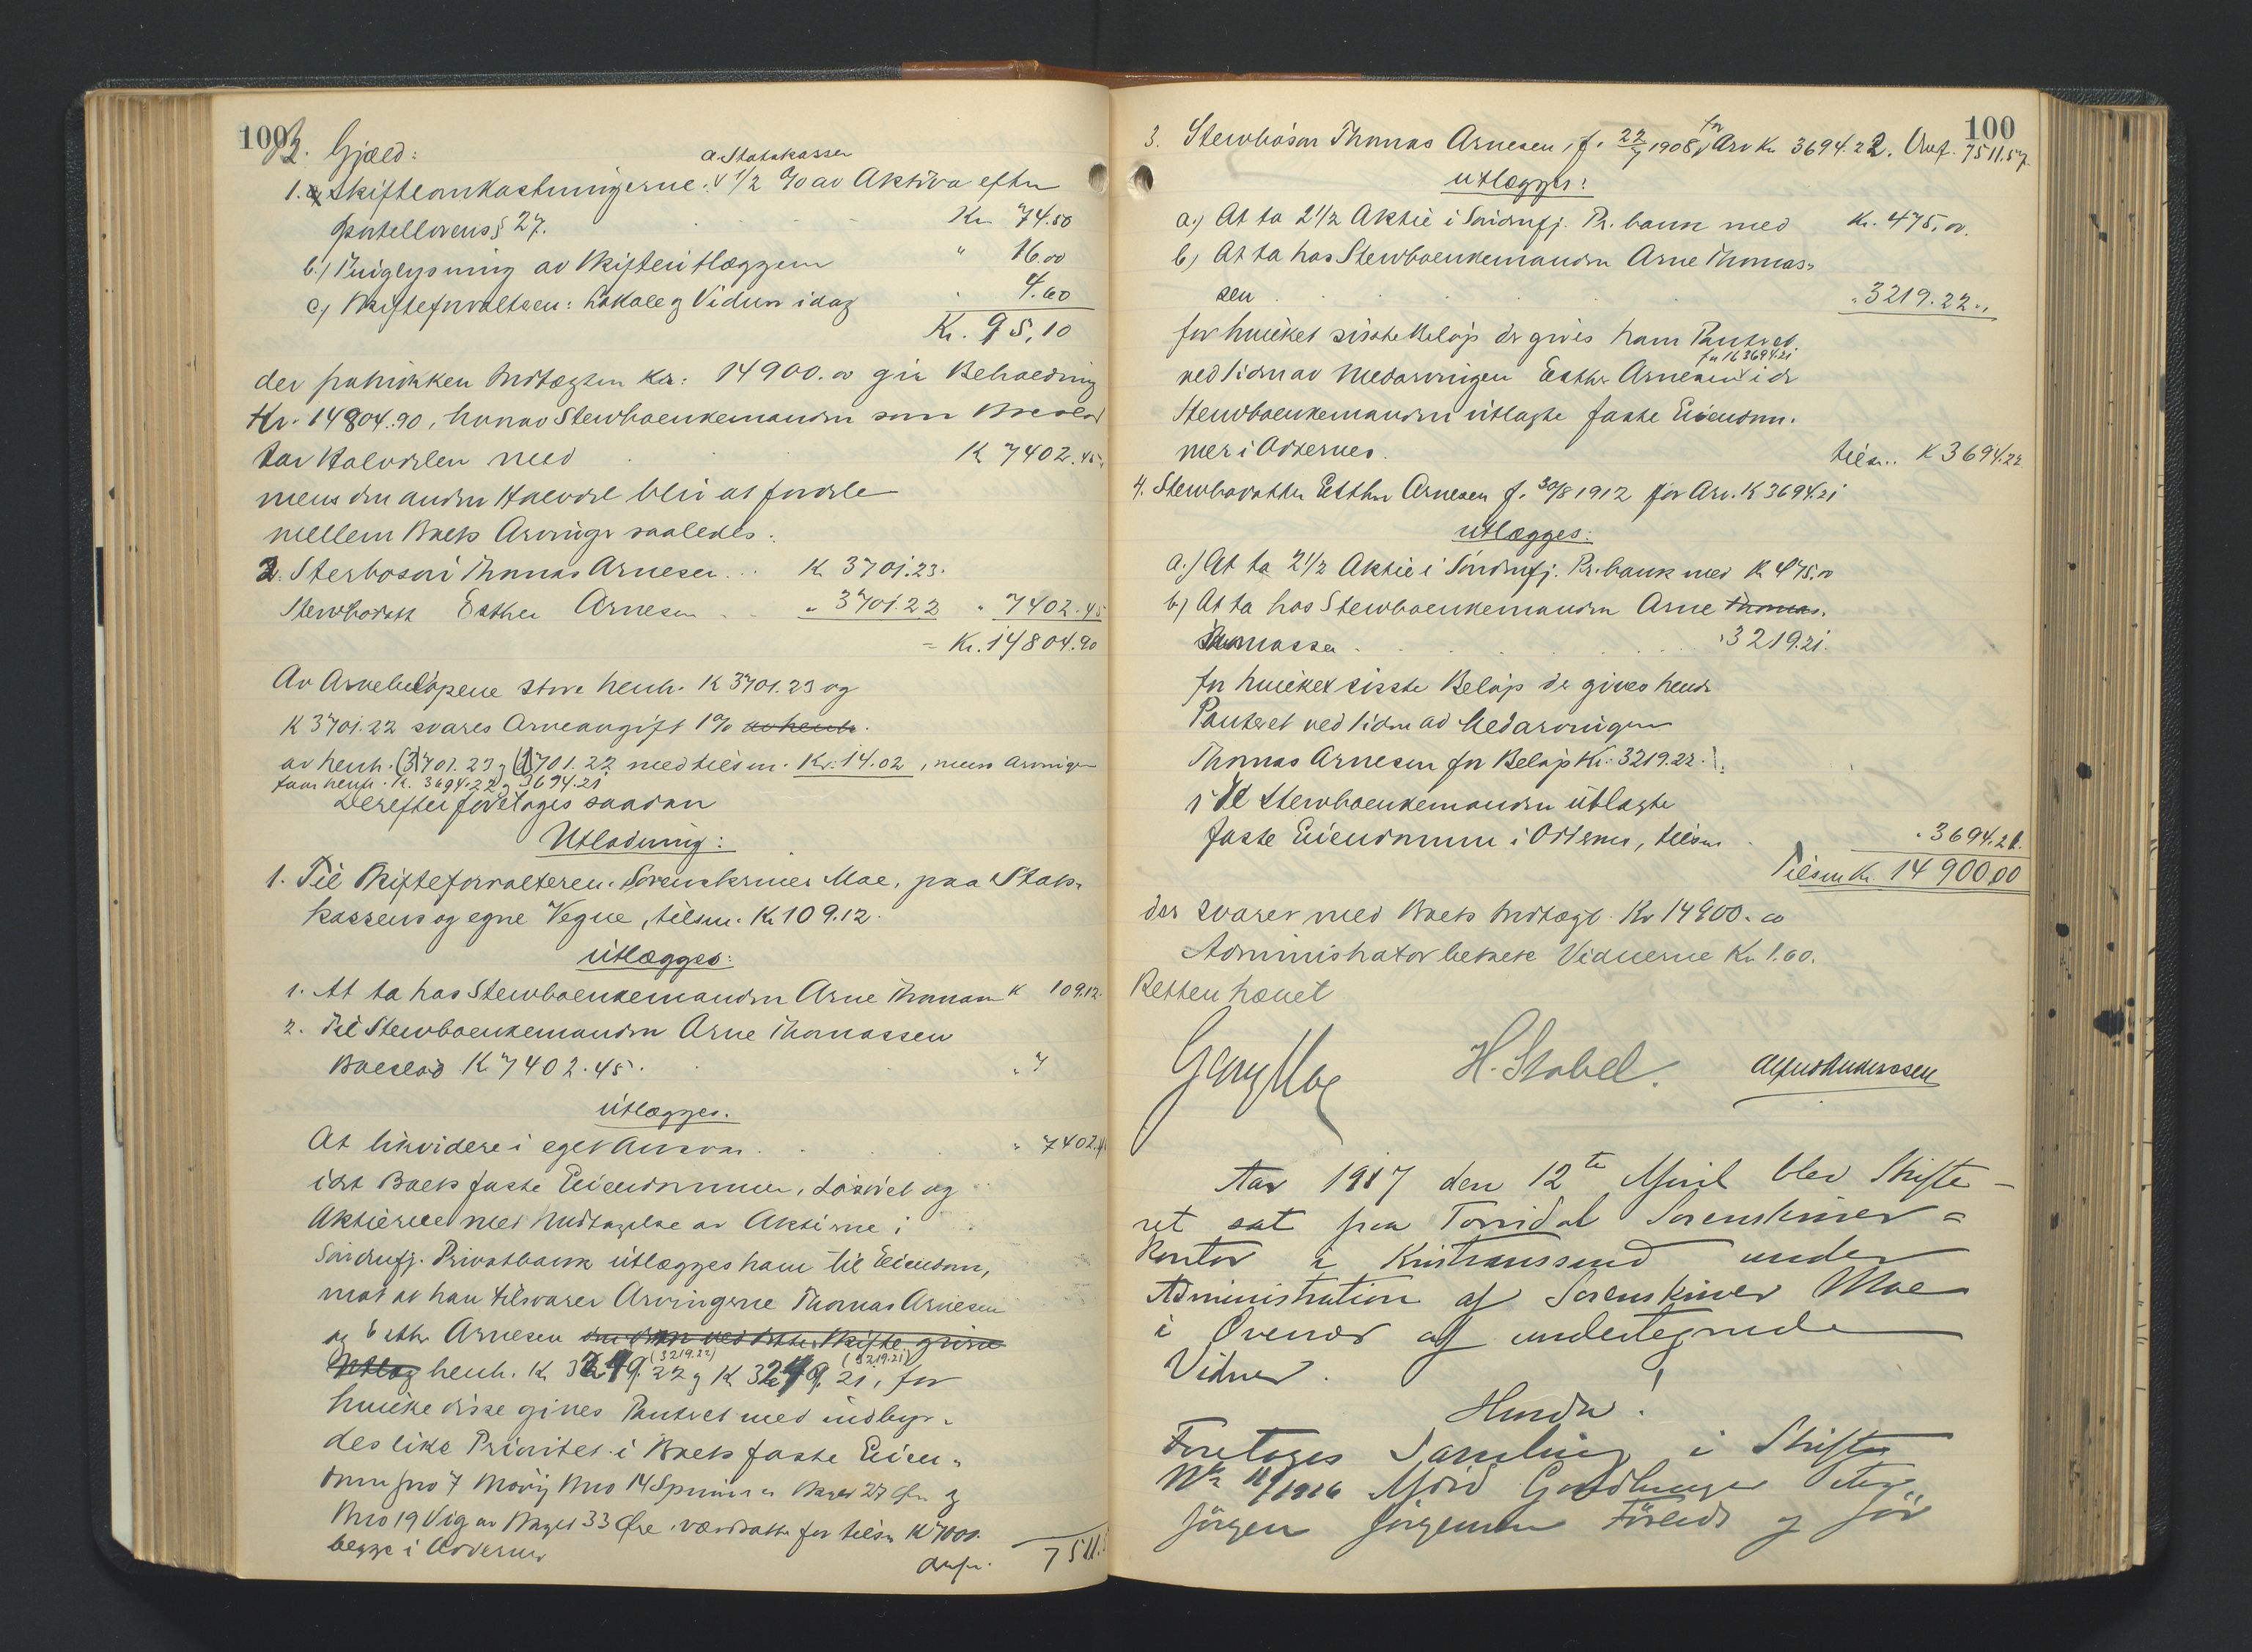 100
B. Gjæld:
a. Statskassen
1. Skifteomkostningerne: 1/2 % av Aktiva efter
Sportellovens § 27. Kr 74.50
b.) Tinglysning av Skifteutlæggene " 16.00
c) Skifteforvalteren: Lokale og Vidner idag 4.60
Kr. 95,10
der fratrukken Indtægten Kr: 14900.00 gir Beholdning
Kr. 14804.90, hvorav Stervboenkemanden som Boeslod
tar Halvdelen med K 7402.45
mens den anden Halvdel blir at fordele
mellem Boets Arvinger saaledes:
2. Sterbosøn Thomas Arnesen.. K 3701.23.
Stervbodatt Esther Arnesen.. " 3701.22 " 7402.45
= Kr. 14804.90
Av Arvebeløpene store henh. K 3701.23 og
K 3701.22 svares Arveavgift 1% av henh.
av henh. (3)701.23 og (3)701.22 med tilsm. Kr. 14.02, mens Arvingen
faar henh. K. 3694.22 og 3694.21
Derefter foretages saadan
Utlodning:
1. Til Skifteforvalteren, Sorenskriver Moe, paa Stats-
kassens og egne Vegne, tilsm. Kr 109.12.
utlægges:
1. At ta hos Stervboenkemanden Arne Thomassen K 109.12.
2. Til Stervboenkemanden Arne Thomassen
Boeslod K 7402.45.
utlægges.
At likvidere i eget Ansvar. " 7402.45
idet Boets faste Eiendommer, Løsøret og
Aktierne med Undtagelse av Aktierne i
Søndenfj. Privatbank utlægges ham til Eiendom,
mot at han tilsvarer Arvingerne Thomas Arnesen
og Esther Arnesen den dem ved dette Skifte givne
Utlæg henh. K 3219.22 (3219.22) og K 3219.21 (3219.21), for
hvilke disse gives Panteret med indbyr-
des like Prioritet i Boets faste Eien-
domme Bno 7 Bno 14 av Skyld 27 Øre og
Bno 19 Vig av Skyld 33 Øre værdsatte for tilsm K 7000.
begge i Oddernes
Overf. 7511.57
100
3. Stervbosøn Thomas Arnesen, f. 22/7 1908, for Arv Kr 3694.22. Overf. 7511.57
utlægges:
a.) At ta 2 1/2 Aktie i Søndenfj. Pr. bank med Kr. 475,00.
b) At ta hos Stervboenkemanden Arne Thomas-
sen " 3219.22.
for hvilket sisste Beløp der gives ham Panteret
for K 3694.21
ved Siden av Medarvingen Esther Arnesen i de
Stervboenkemanden utlagte faste Eiendom-
mer i Oddernes. tilsm. K 3694.22
4. Stervbodatter Esther Arnesen f. 30/8 1912 for Arv. K 3694.21
utlægges:
a.) At ta 2 1/2 Aktie i Søndenfj. Pr. bank med K 475.00
b) At ta hos Stervboenkemanden Arne Thomas-
Thomassen " 3219.21.
for hvilket sisste Beløp der gives hende
Panteret ved Siden av Medarvingen
Thomas Arnesen for Beløp Kr. 3219.22.
i de Stervboenkemanden utlagte
faste Eiendomme i Oddernes, tilsm " 3694.21.
Tilsm Kr. 14900,00
der svarer med Boets Indtægt Kr 14900.00
Administrator betalte Vidnerne Kr 1.60.
Retten hævet
Georg Moe H. Stabel. Alfred Anderssen
Aar 1917 den 12te April blev Skifte-
ret sat paa Torridal Sorenskriver-
kontor i Kristianssand under
Administration af Sorenskriver Moe
i Overvær af undertegnede
Vidner.
Hvorda!
Foretoges Samling i Skifte
No 11/1916
Jørgen Jørgensen og